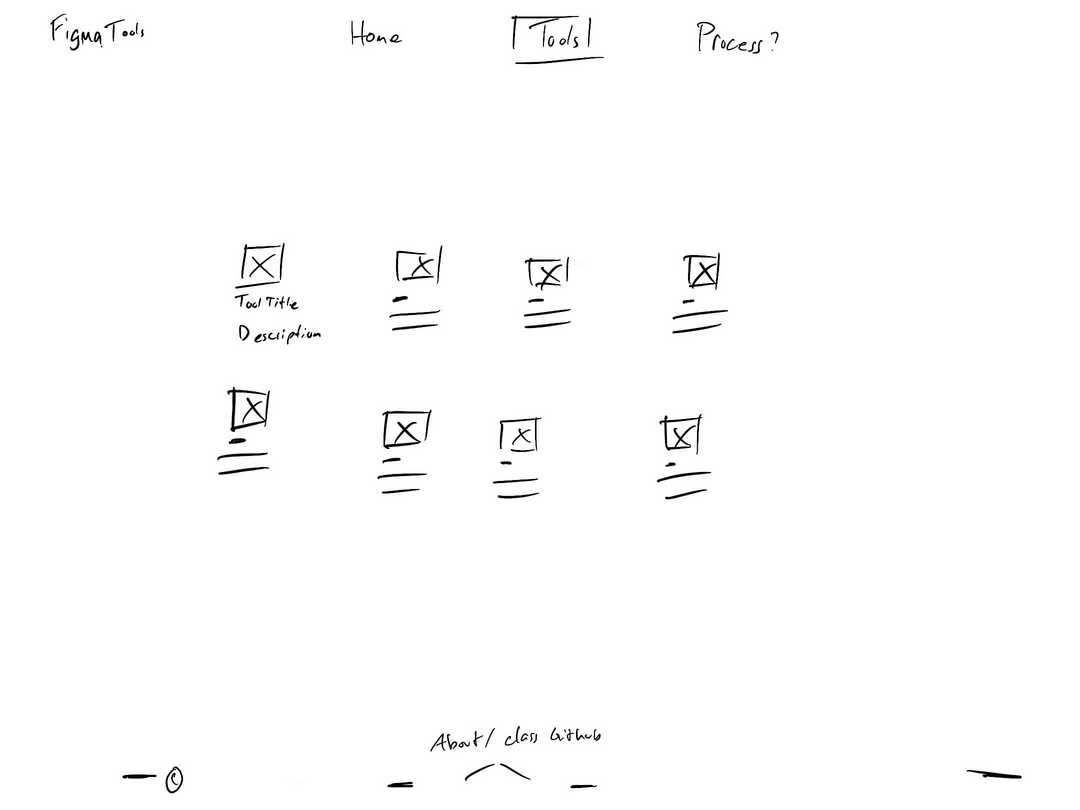 Figma Tools
Home
Tools
Process?
Tool Title
Description
About/ class Github
©